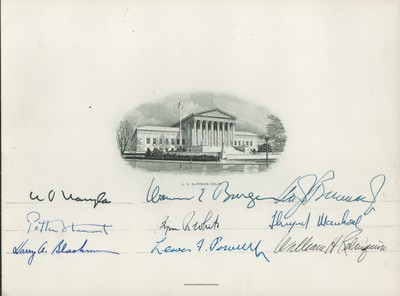 U. S. SUPREME COURT
W O Douglas Warren E Burger Wm J Brennan Jr
Potter Stewart Byron R White Thurgood Marshall
Harry A. Blackmun Lewis F. Powell Jr William H Rehnquist